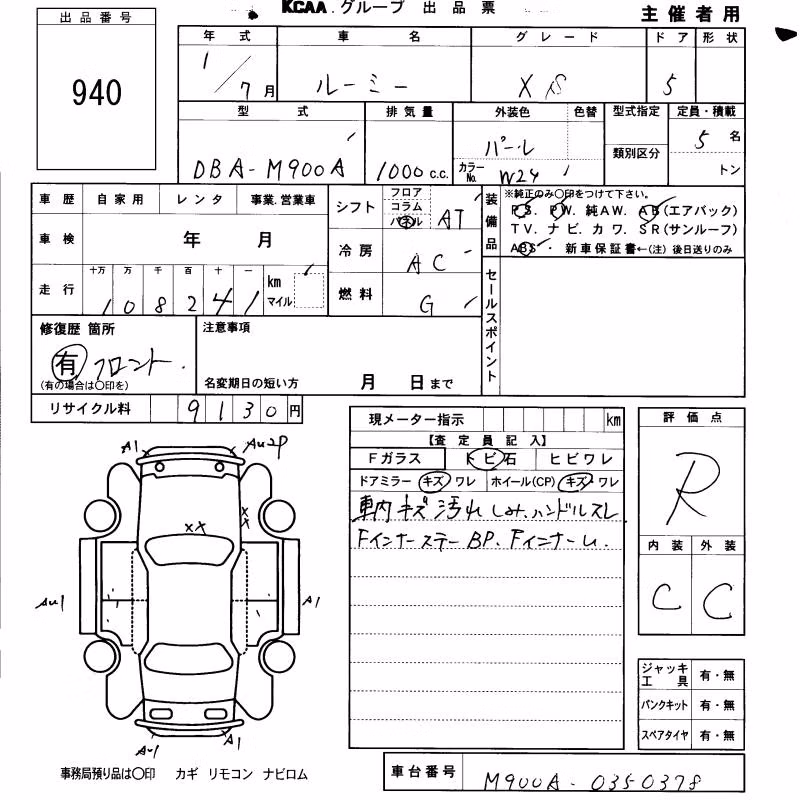 KCAA.グループ 出品票
主催者用
出品番号
940
年式 車名 グレード ドア 形状
1/7月 ルーミー X S 5
型式 排気量 外装色 色替 型式指定 定員・積載
DBA-M900A 1000 c.c. パール カラーNo. W24 類別区分 5名
トン
車歴 自家用 レンタ 事業.営業車
車検 年 月
走行 十万 万 千 百 十 一
1 0 8 2 4 1 km マイル
シフト フロア コラム パネル AT
冷房 AC
燃料 G
装備品
※純正のみ○印をつけて下さい。
PS. PW. 純AW. AB(エアバック)
TV. ナビ. カワ. SR(サンルーフ)
ABS・ 新車保証書←(注)後日送りのみ
セールスポイント
修復歴 箇所
有 フロント.
(有の場合は○印を)
注意事項
名変期日の短い方 月 日まで
リサイクル料 9130円
現メーター指示 km
【査定員記入】
Fガラス トビ石 ヒビワレ
ドアミラー キズ ワレ ホイール(CP) キズ ワレ
車内キズ 汚れ しみ.ハンドルスレ
FインナーステーBP. Fインナーu.
評価点
R
内装 外装
C C
A1 Au2P
XX
X
X
Au1 A1
Au1 A1
ジャッキ工具 有・無
パンクキット 有・無
スペアタイヤ 有・無
事務局預り品は○印 カギ リモコン ナビロム
車台番号 M900A-0350378